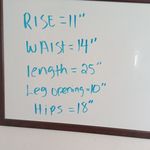 RISE = 11"
WAIST = 14"
length = 25"
Leg opening = 10"
Hips = 18"